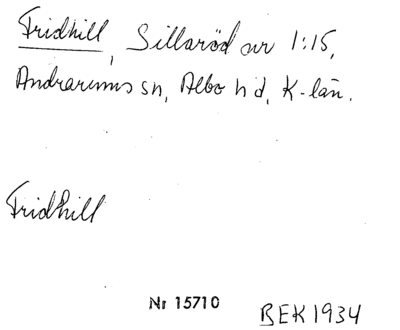 Fridhill, Sillaröd nr 1:15,
Andrarums sn, Albo hd, K-län.
Fridhill
Nr 15710 BEK 1934